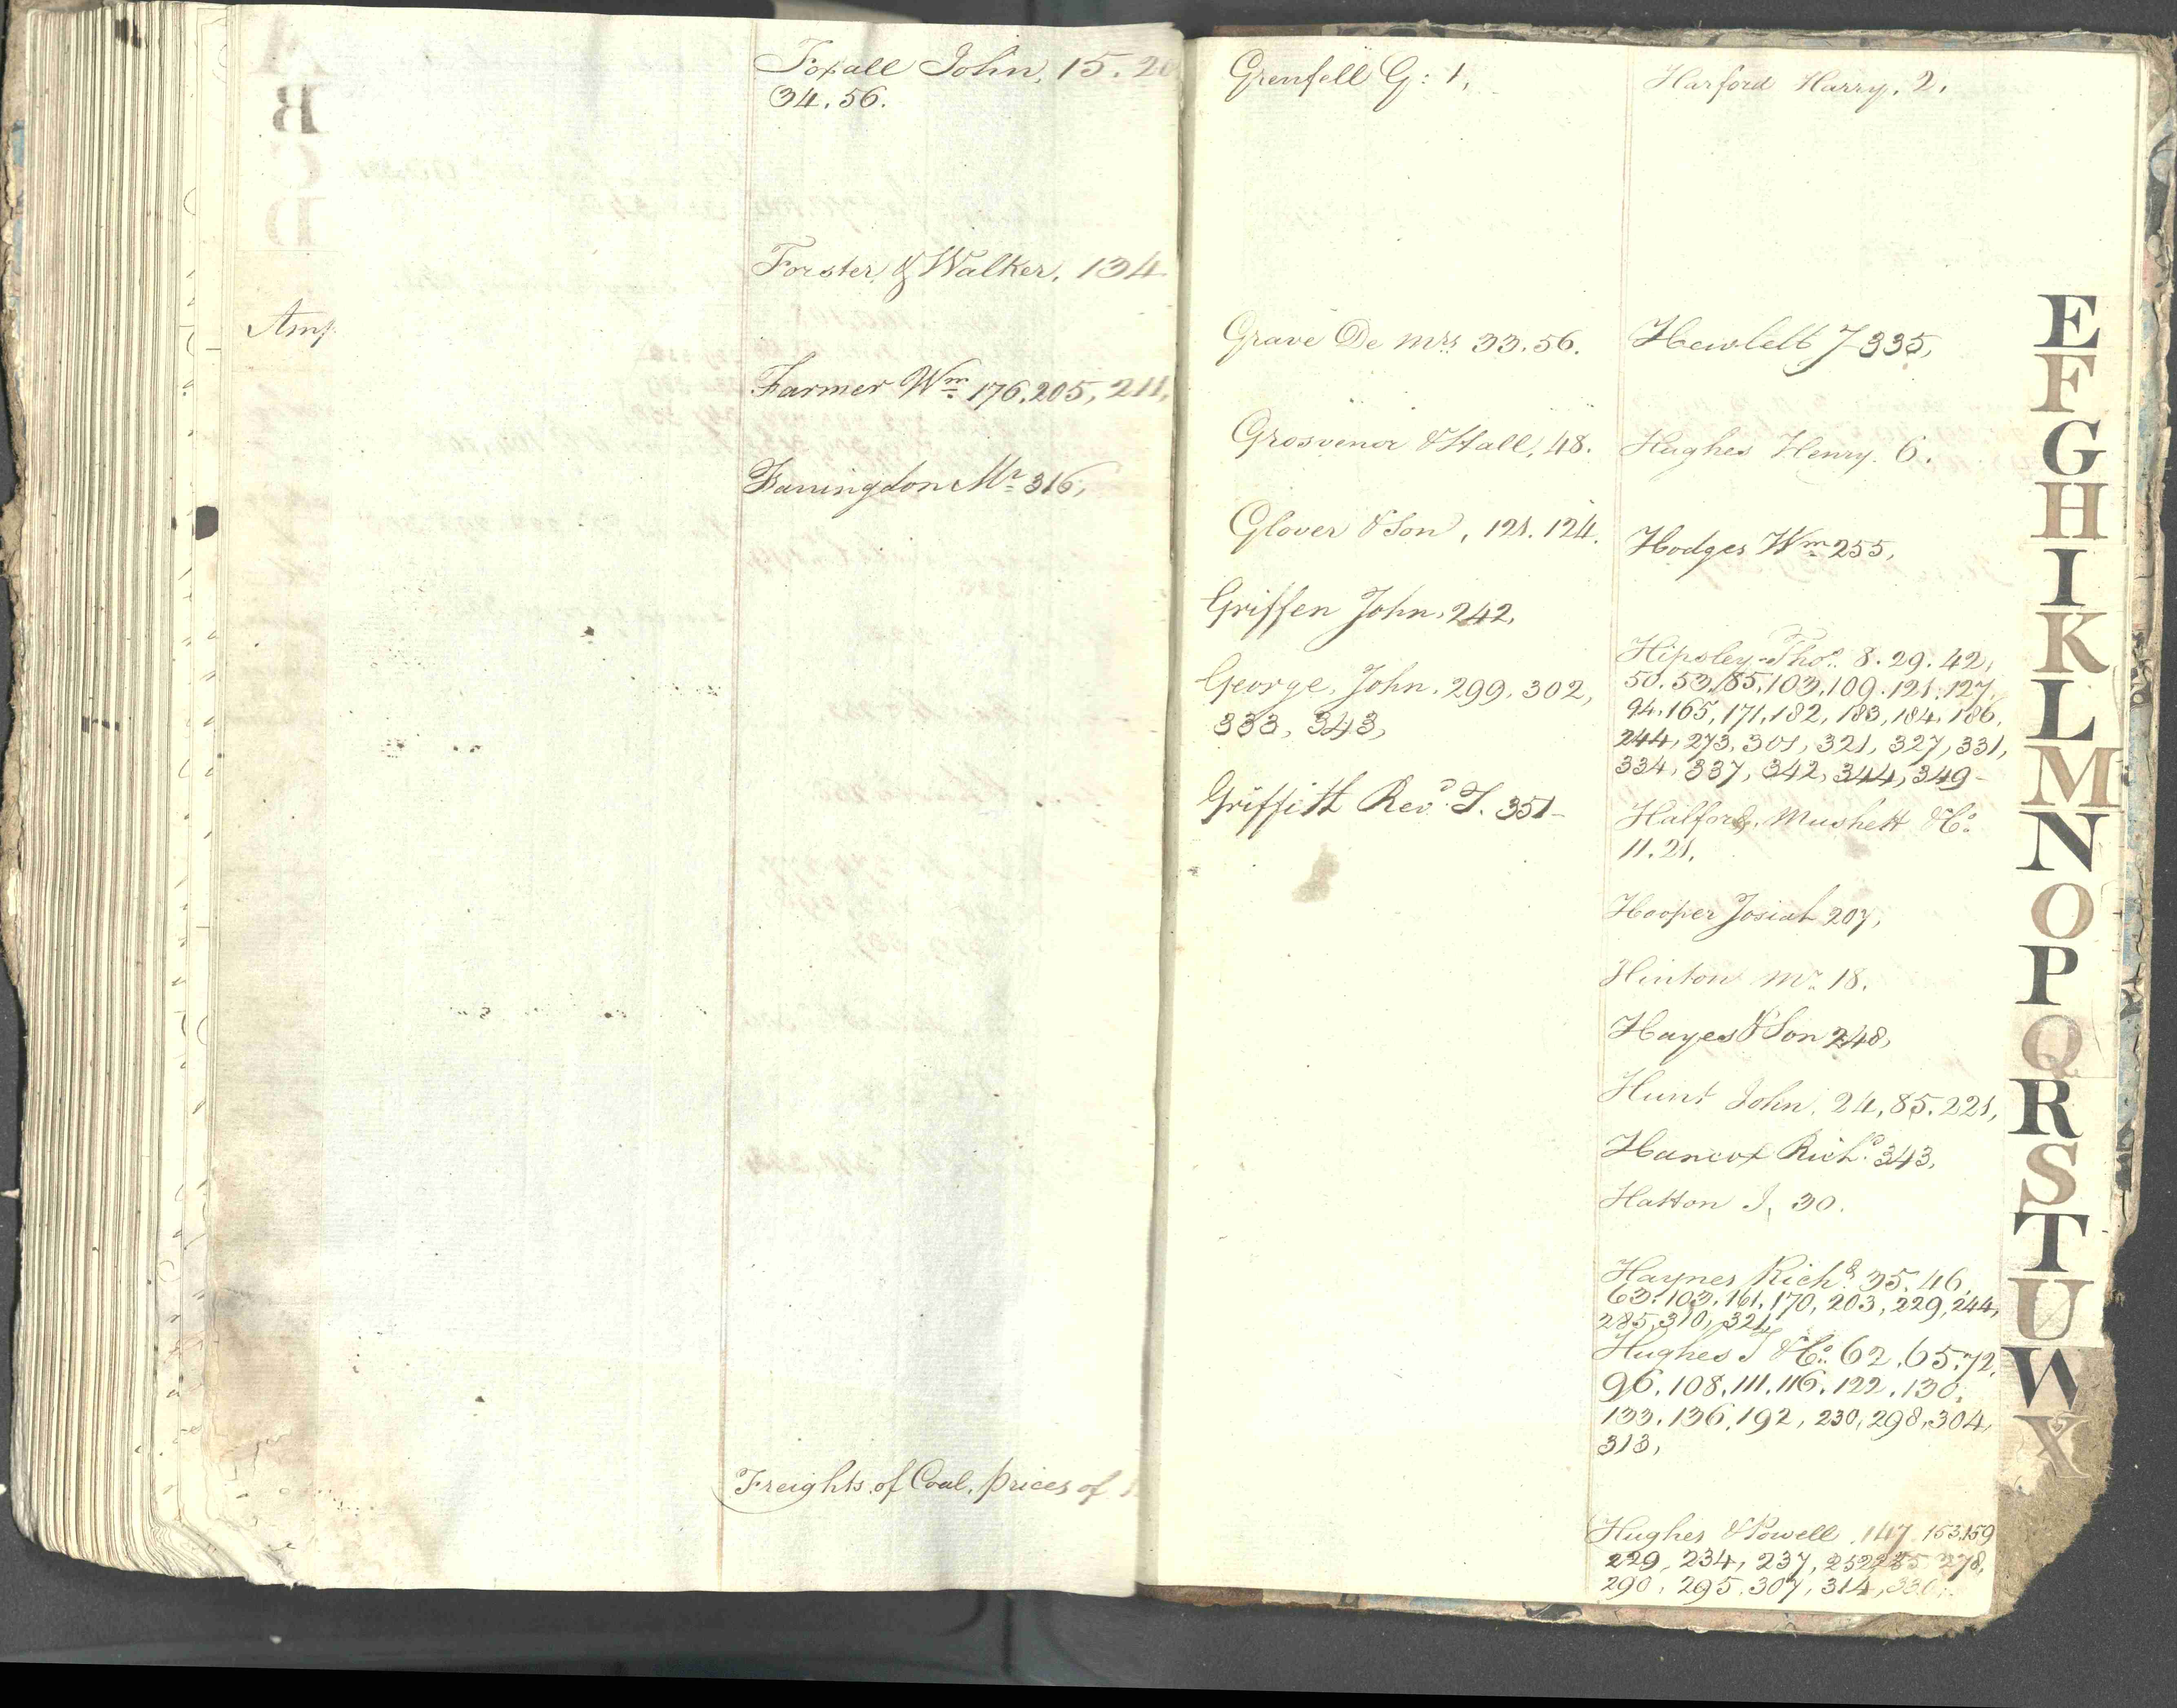 Amp
Foxall John, 15. 20
34. 56.
Forster & Walker, 134
Farmer Wm 176, 205, 211,
Farringdon Mr 316,
Freights of Coal, prices of
Grenfell G: 1,
Grave De Mrs 33. 56.
Grosvenor & Hall, 48.
Glover & Son, 121. 124.
Griffen John, 242,
George, John, 299, 302,
333, 343,
Griffith Revd. T. 351-
Harford Harry, 2,
Hewlett J 335,
Hughes Henry. 6.
Hodges Wm 255,
Hipsley Thos. 8. 29. 42,
50. 53. 85. 103. 109. 121. 127.
94. 165, 171, 182, 183, 184, 186,
244, 273, 301, 321, 327, 331,
334, 337, 342, 344, 349-
Halford, Mushett & Co.
11. 21.
Hooper Josiah 207,
Hinton Mr. 18.
Hayes & Son 248,
Hunt John, 24, 85. 221,
Hancox Richd. 343,
Hatton J, 30.
Haynes Richd. 35. 46,
63. 103. 161. 170, 203, 229, 244,
285, 310, 321,
Hughes J & Co. 62. 65. 72.
96. 108. 111. 116. 122. 130.
133. 136. 192, 230, 298, 304,
313,
Hughes & Powell 147 153. 159
229, 234, 237, 252 278,
290, 295. 307, 314,
E
F
G
H
I
K
L
M
N
O
P
Q
R
S
T
U
W
X